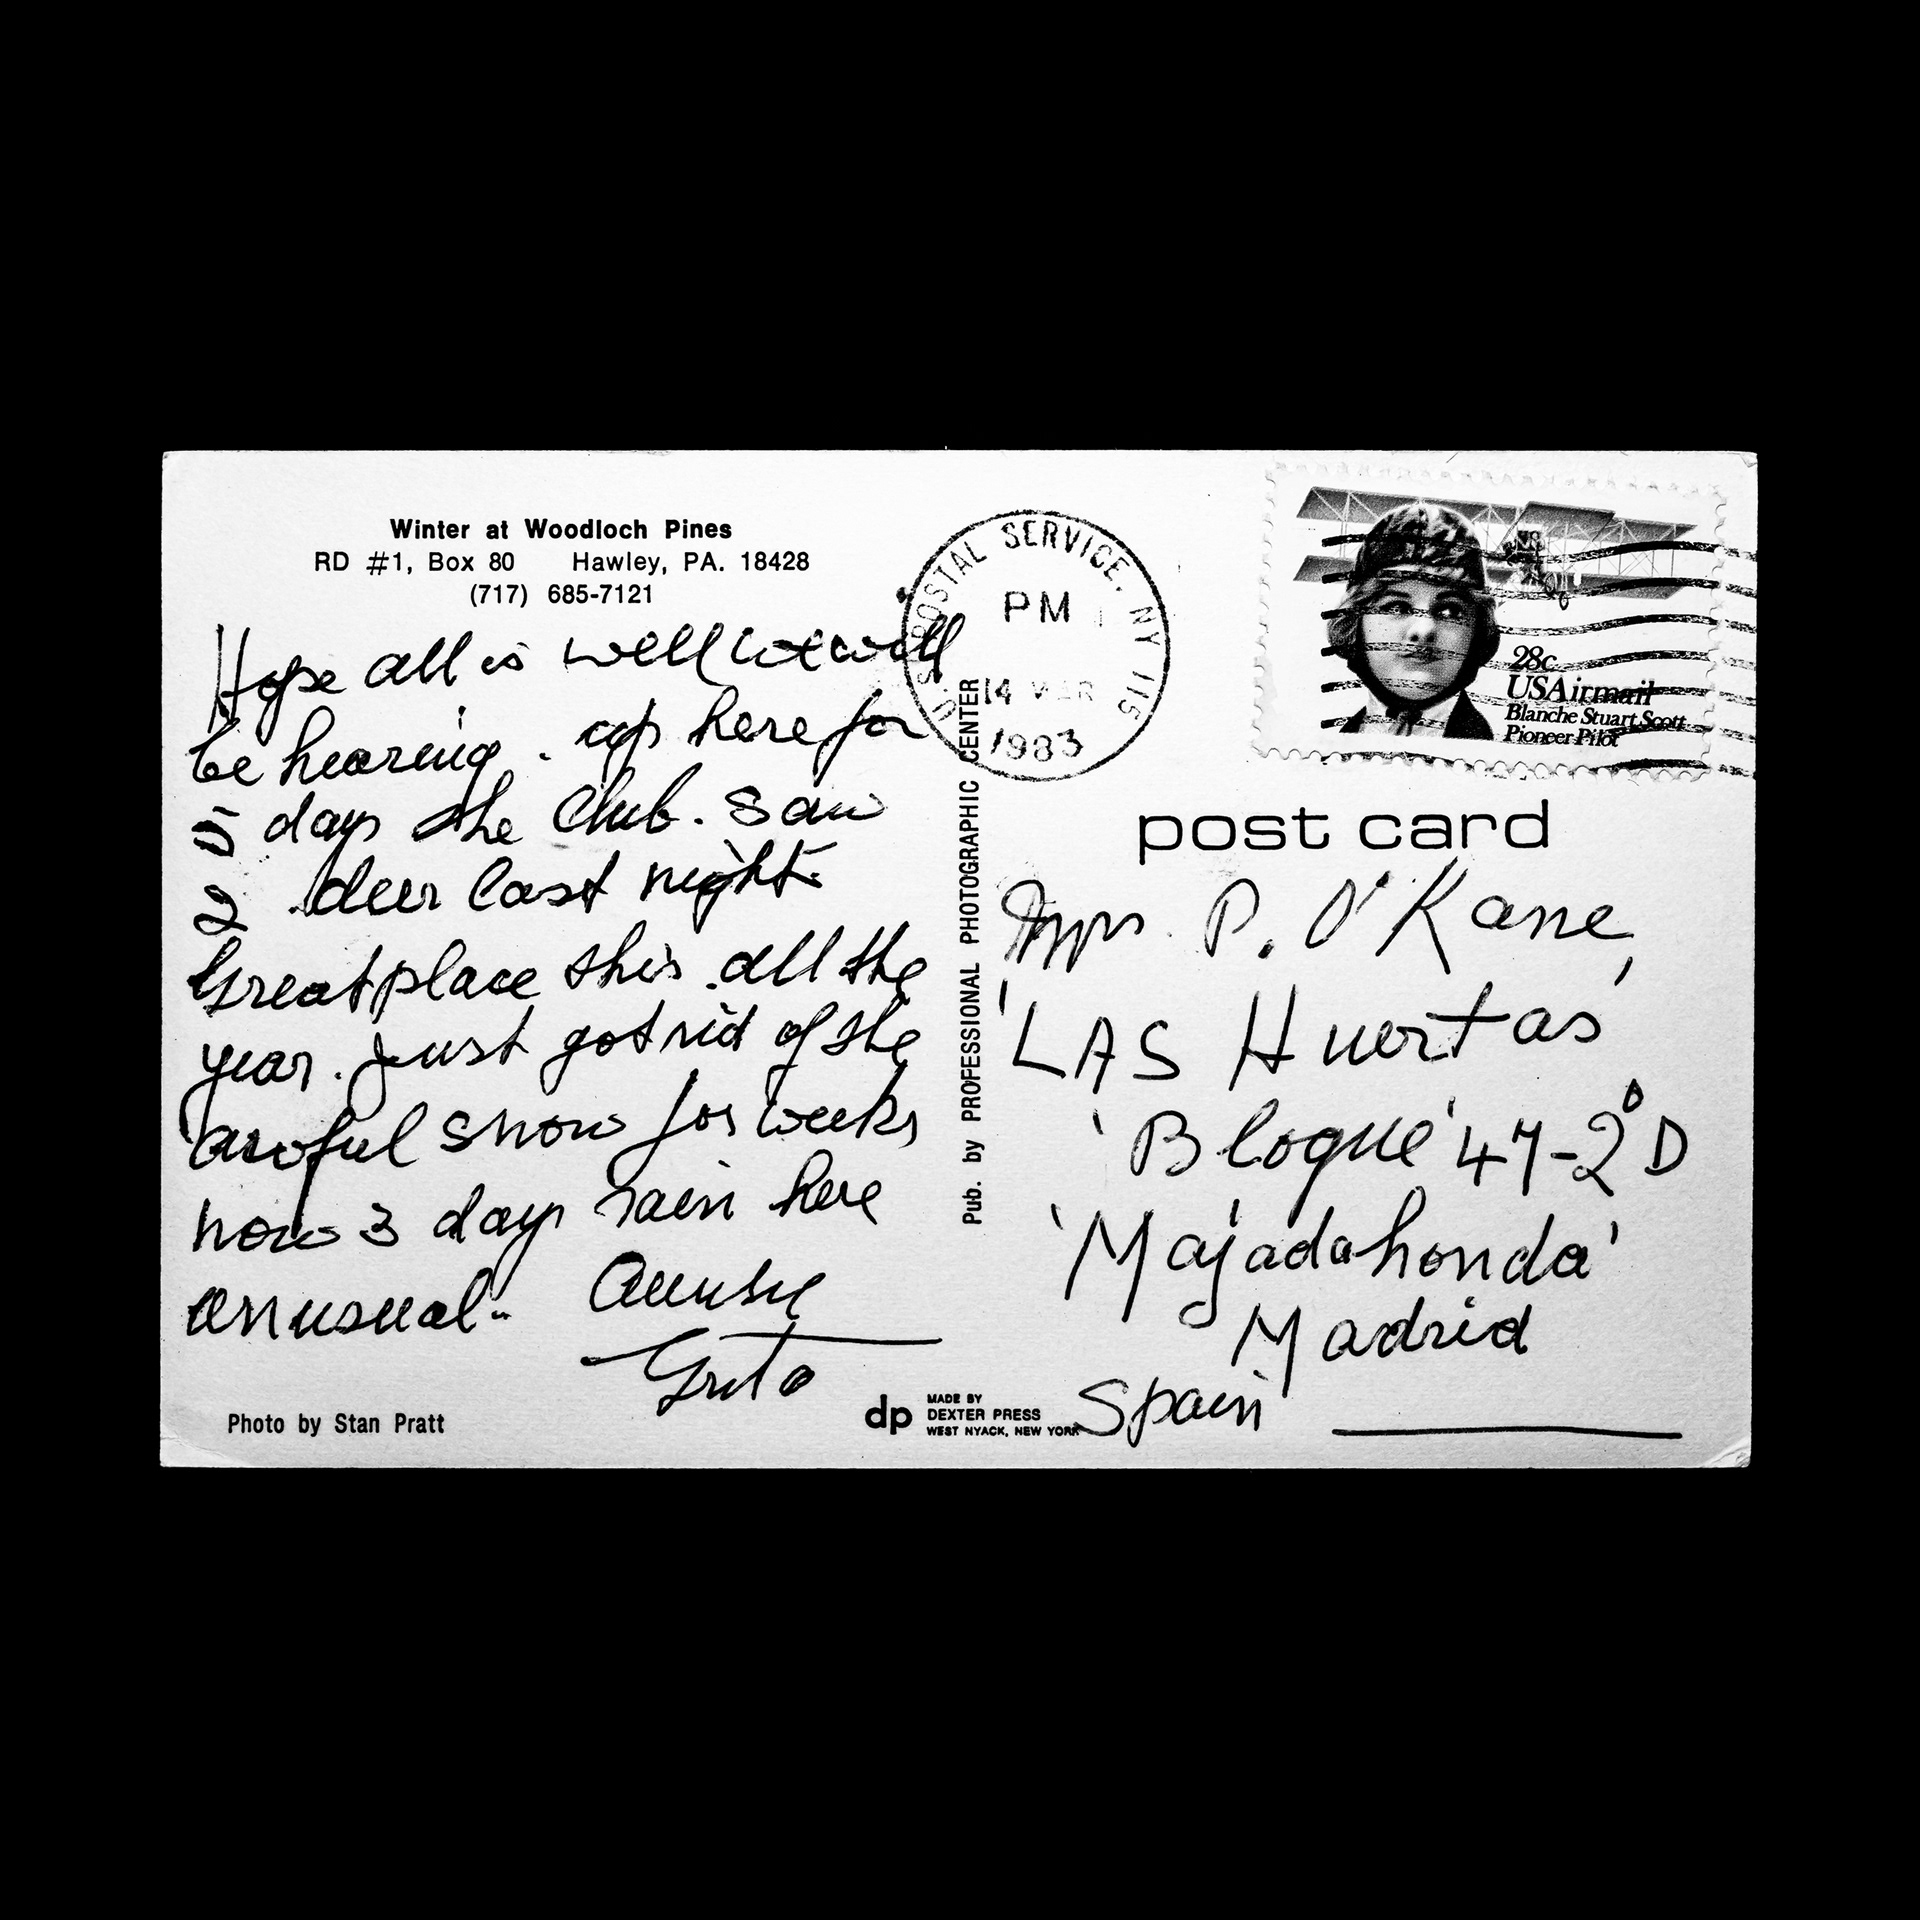 Winter at Woodloch Pines
RD #1, Box 80 Hawley, PA. 18428
(717) 685-7121
Hope all is well will
be hearing. up here for
5 days the Club. Saw
2 deer last night.
Great place this. all the
year. Just got rid of the
awful snow for weeks
now 3 days rain here
unusual.
Greta
Photo by Stan Pratt
dp MADE BY
DEXTER PRESS
WEST NYACK, NEW YORK
Pub. by PROFESSIONAL PHOTOGRAPHIC CENTER
U.S. POSTAL SERVICE, NY 115
PM
14 MAR
1983
28c
USAirmail
Blanche Stuart Scott
Pioneer Pilot
post card
Mrs. P. O'Kane,
'LAS Huertas'
'Bloque' 47-2º D
'Majadahonda'
Madrid
Spain